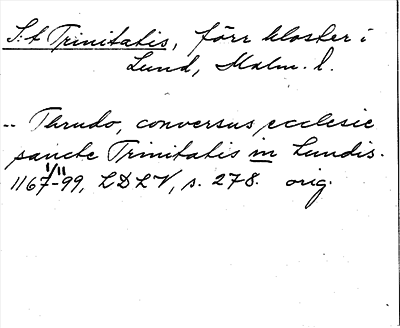 S:t Trinitatis, förr kloster i
Lund, Malm. l.
-- Thrudo, conversus ecclesie
sancte Trinitatis in Lundis.
1/11
1167-99, LDLV, s. 278. orig.